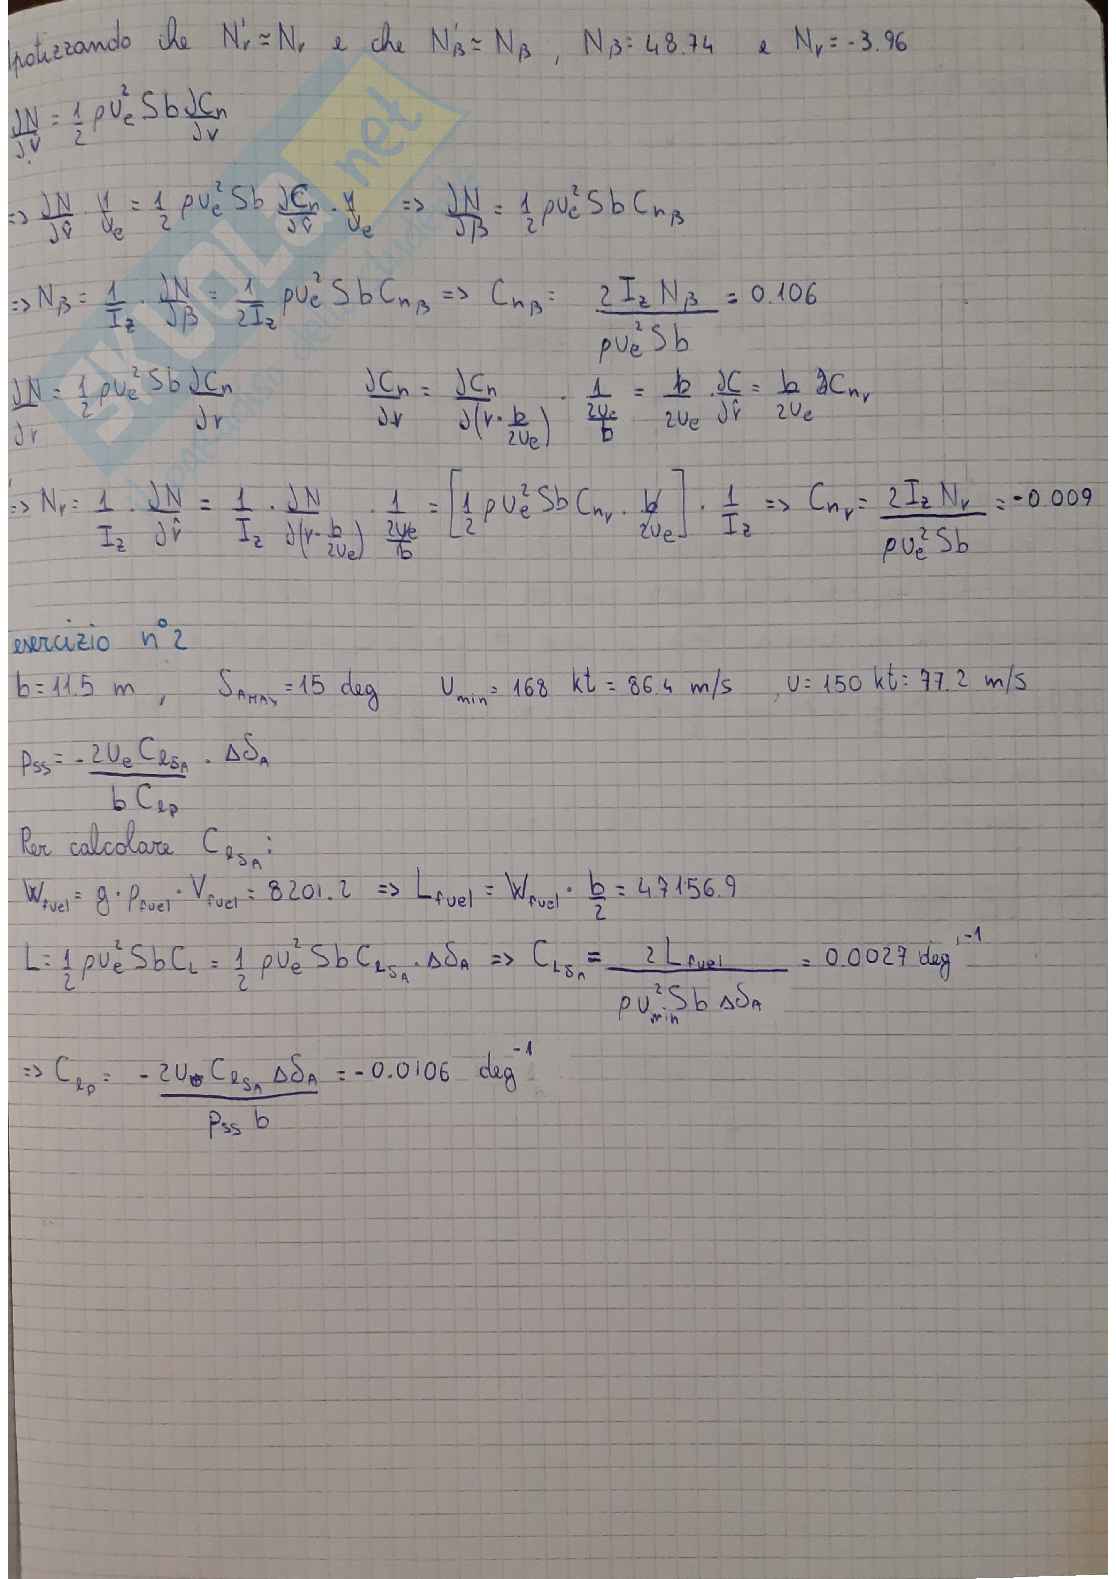 Ipotizzando che N'r ≃ Nr e che N'β ≃ Nβ , Nβ = 48.74 e Nr = -3.96
∂N/∂v̂ = 1/2 ρUe² Sb ∂Cn/∂v
=> ∂N/∂v̂ · 1/Ue = 1/2 ρUe² Sb ∂Cn/∂v̂ · 1/Ue => ∂N/∂β = 1/2 ρUe² Sb Cnβ
=> Nβ = 1/Iz · ∂N/∂β = 1/2Iz ρUe² Sb Cnβ => Cnβ = 2 Iz Nβ / ρUe² Sb = 0.106
∂N/∂r = 1/2 ρUe² Sb ∂Cn/∂r ∂Cn/∂r = ∂Cn/∂(r · b/2Ue) · 1/(2Ue/b) = b/2Ue · ∂C/∂r̂ = b/2Ue Cnr
=> Nr = 1/Iz · ∂N/∂r̂ = 1/Iz · ∂N/∂(r · b/2Ue) · 1/(2Ue/b) = [1/2 ρUe² Sb Cnr · b/2Ue] · 1/Iz => Cnr = 2 Iz Nr / ρUe² Sb = -0.009
esercizio n° 2
b = 11.5 m , δA MAX = 15 deg Umin = 168 kt = 86.4 m/s , U = 150 kt = 77.2 m/s
pss = - 2Ue CℓδA / b Cℓp · ΔδA
Per calcolare CℓδA :
Wfuel = g · ρfuel · Vfuel = 8201.2 => Lfuel = Wfuel · b/2 = 47156.9
L = 1/2 ρUe² Sb CL = 1/2 ρUe² Sb CℓδA · ΔδA => CLδA = 2 Lfuel / ρUmin² Sb ΔδA = 0.0027 deg⁻¹
=> Cℓp = - 2U CℓδA ΔδA / pss b = -0.0106 deg⁻¹
SKUOLA.net